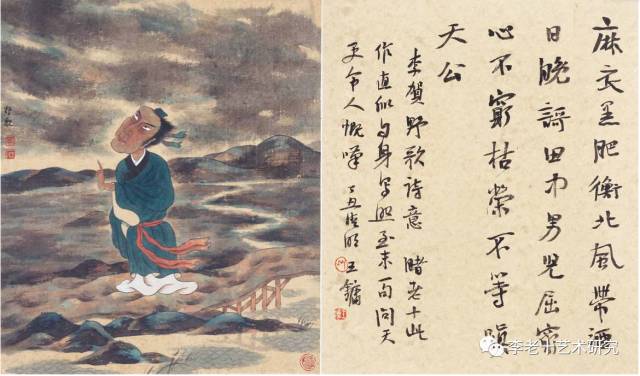 麻衣黑肥衝北風帶酒
日晚謌田中男兒屈窮
心不窮枯榮不等嗔
天公
李賀野歌詩意 睹老十此
作直似自身写照至末一句問天
更令人慨嘆 丁丑清明 王鏞
李老十艺术研究